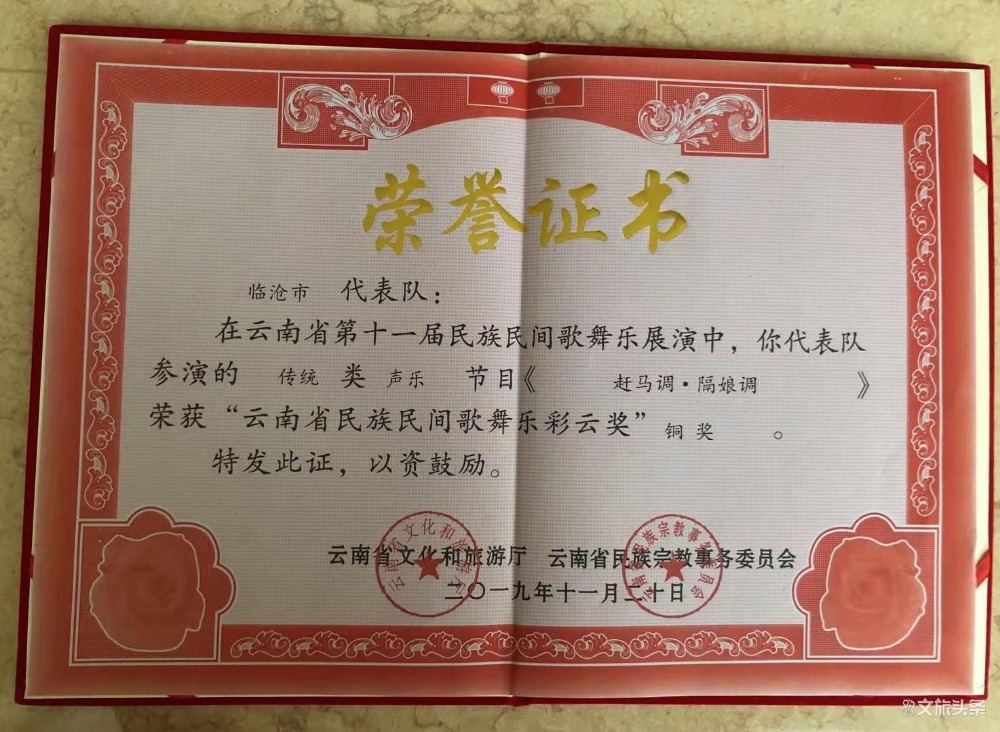 荣誉证书
临沧市 代表队：
在云南省第十一届民族民间歌舞乐展演中，你代表队
参演的 传统 类 声乐 节目《 赶马调·隔娘调 》
荣获“云南省民族民间歌舞乐彩云奖” 铜奖 。
特发此证，以资鼓励。
云南省文化和旅游厅 云南省民族宗教事务委员会
二〇一九年十一月二十日
云南省文化和旅游厅
云南省民族宗教事务委员会
文旅头条